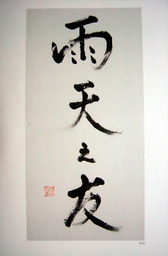 雨天之友